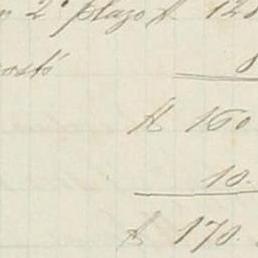 2º plazo $ 120
costó 8
$ 160
10.
$ 170.